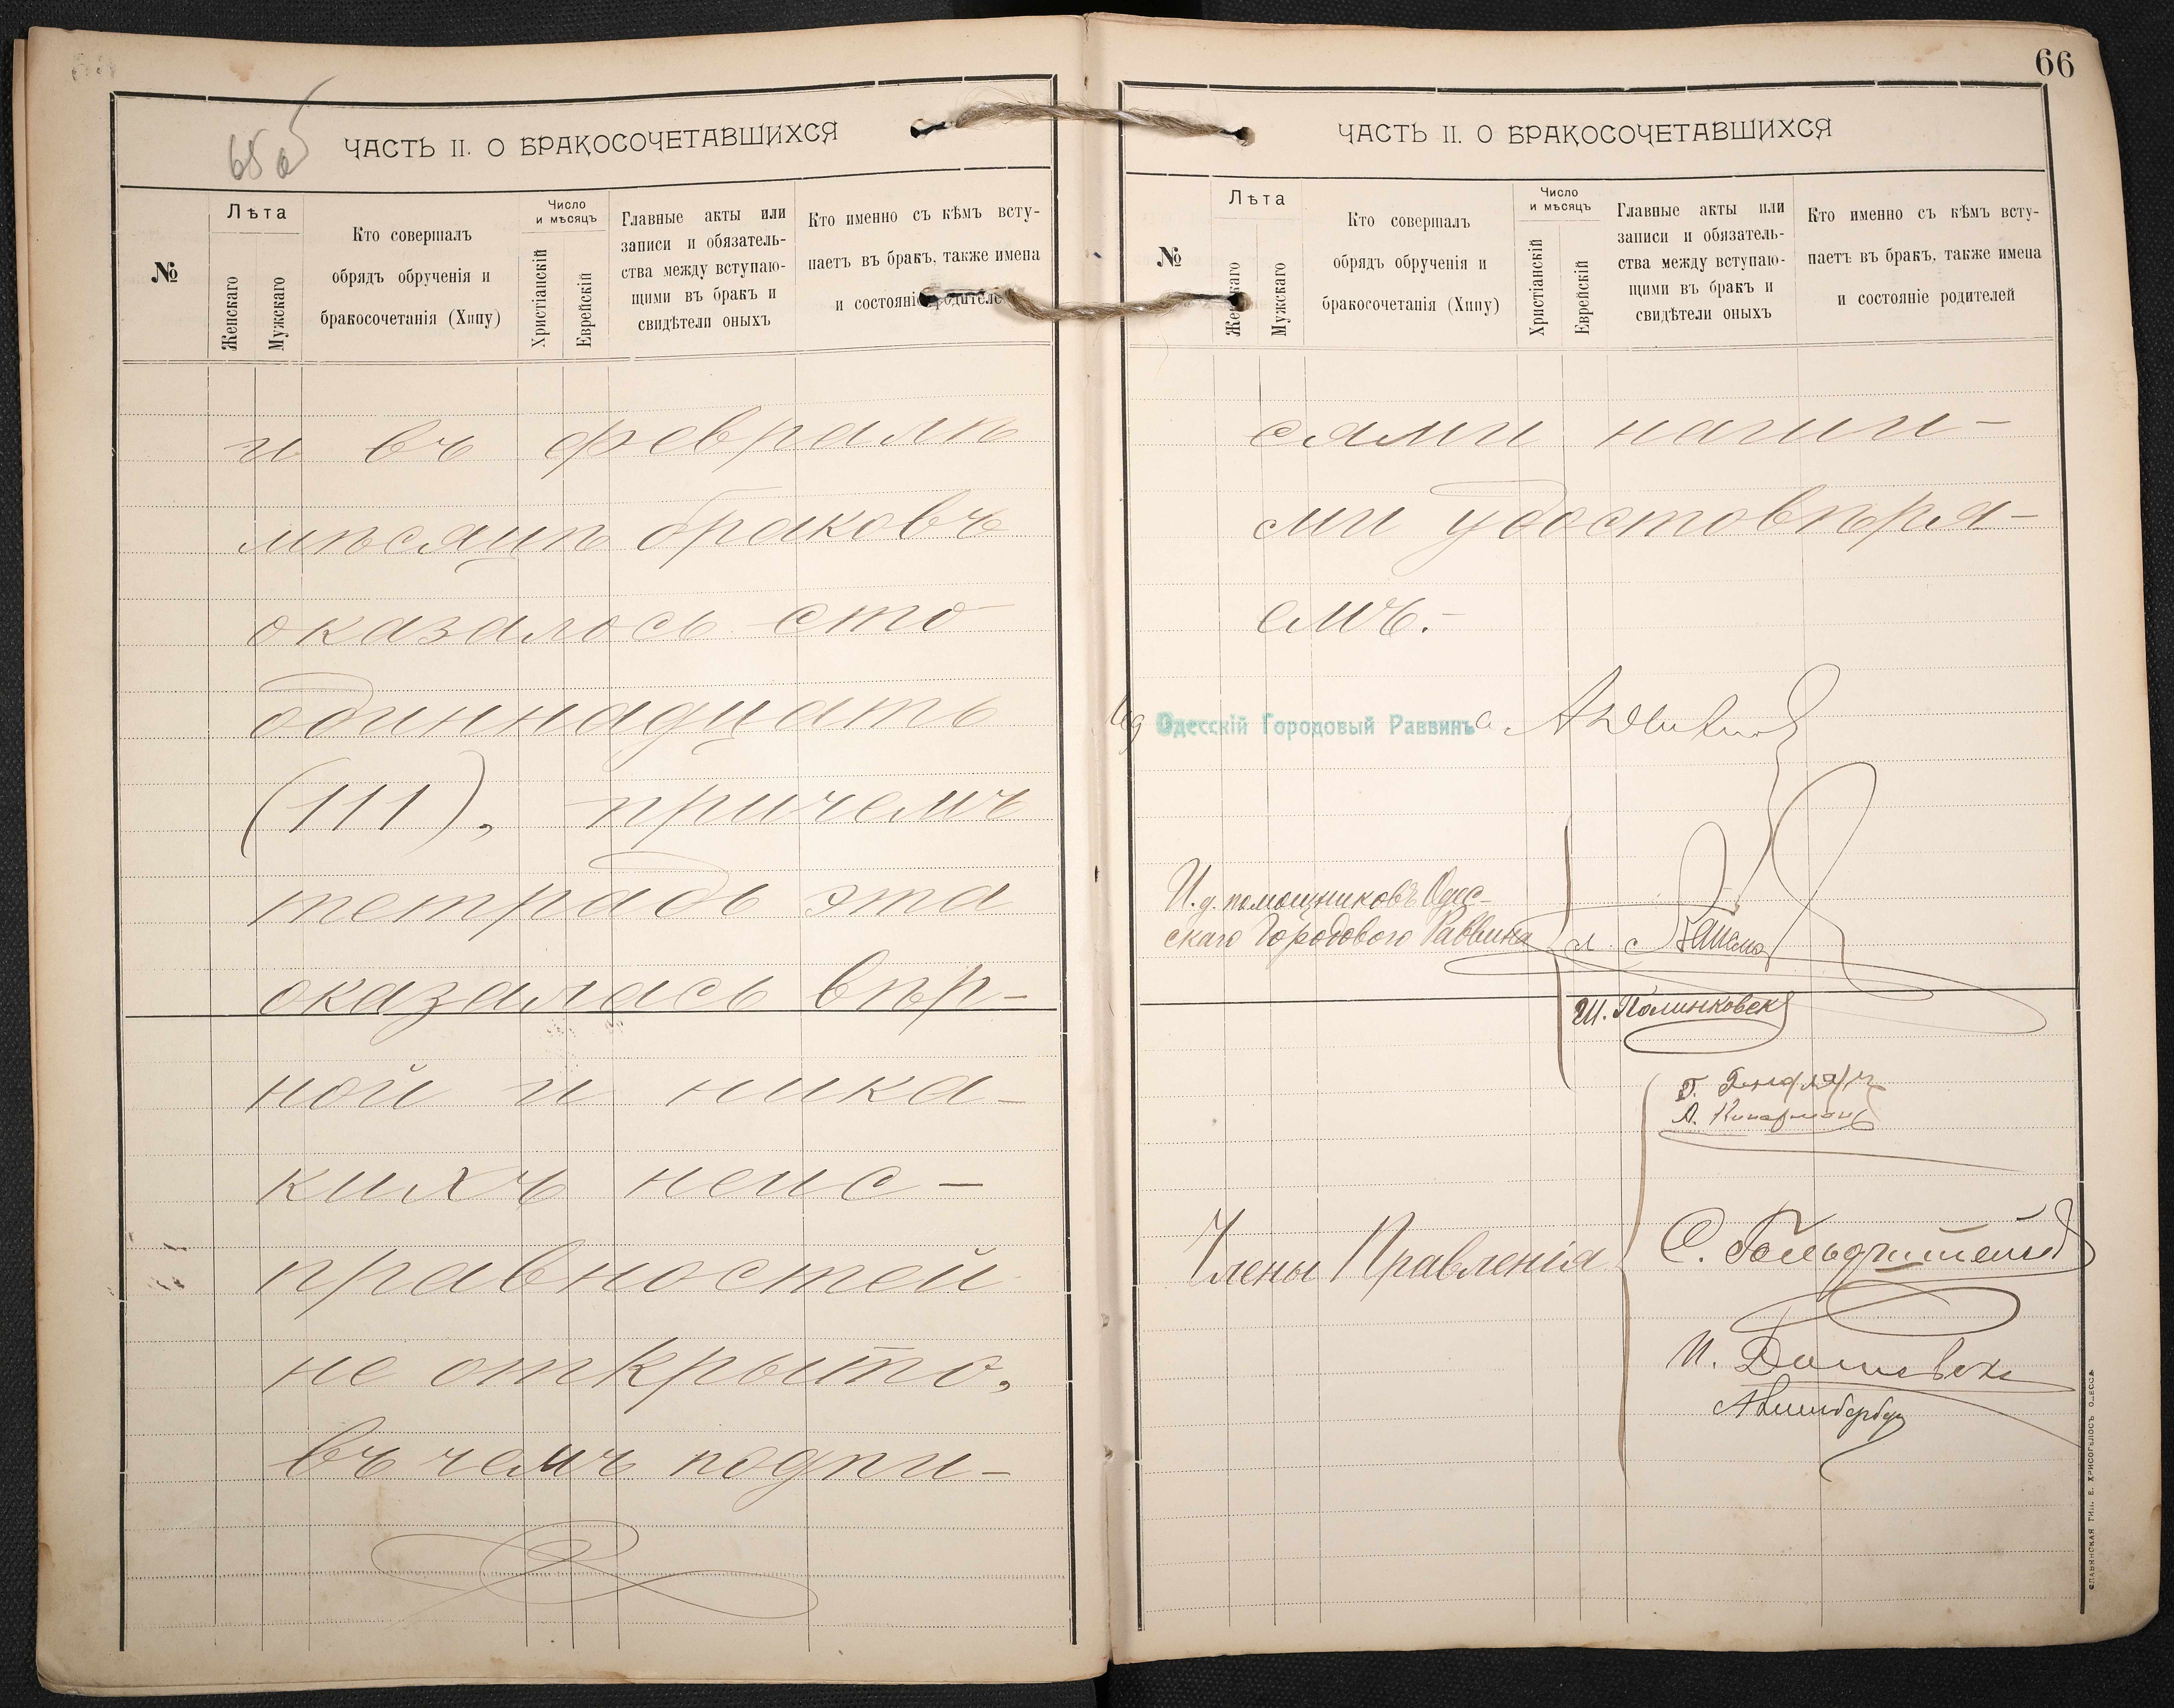 65 об
ЧАСТЬ II. О БРАКОСОЧЕТАВШИХСЯ
№
Лѣта
Женскаго
Мужскаго
Кто совершалъ
обрядъ обрученія и
бракосочетанія (Хипу)
Число
и мѣсяцъ
Христіанскій
Еврейскій
Главные акты или
записи и обязатель-
ства между вступаю-
щими въ бракъ и
свидѣтели оныхъ
Кто именно съ кѣмъ всту-
паетъ въ бракъ, также имена
и состояніе родителей
и въ февралѣ
мѣсяцѣ браковъ
оказалось сто
одиннадцать
(111), причемъ
тетрадь эта
оказалась вѣр-
ной и ника-
кихъ неис-
правностей
не открыто,
въ чемъ подпи-
66
ЧАСТЬ II. О БРАКОСОЧЕТАВШИХСЯ
№
Лѣта
Женскаго
Мужскаго
Кто совершалъ
обрядъ обрученія и
бракосочетанія (Хипу)
Число
и мѣсяцъ
Христіанскій
Еврейскій
Главные акты или
записи и обязатель-
ства между вступаю-
щими въ бракъ и
свидѣтели оныхъ
Кто именно съ кѣмъ всту-
паетъ въ бракъ, также имена
и состояніе родителей
сями наши-
ми удостовѣря-
емъ.-
Ид Одесскій Городовый Раввинъ
И. д. помощниковъ Одес-
скаго Городового Раввина
Ш. Полинковск
Члены Правленія
С. Гольдштейн
И. Дашевск
СЛАВЯНСКАЯ ТИП. Е. ХРИСОГЕЛОСЪ ОДЕССА